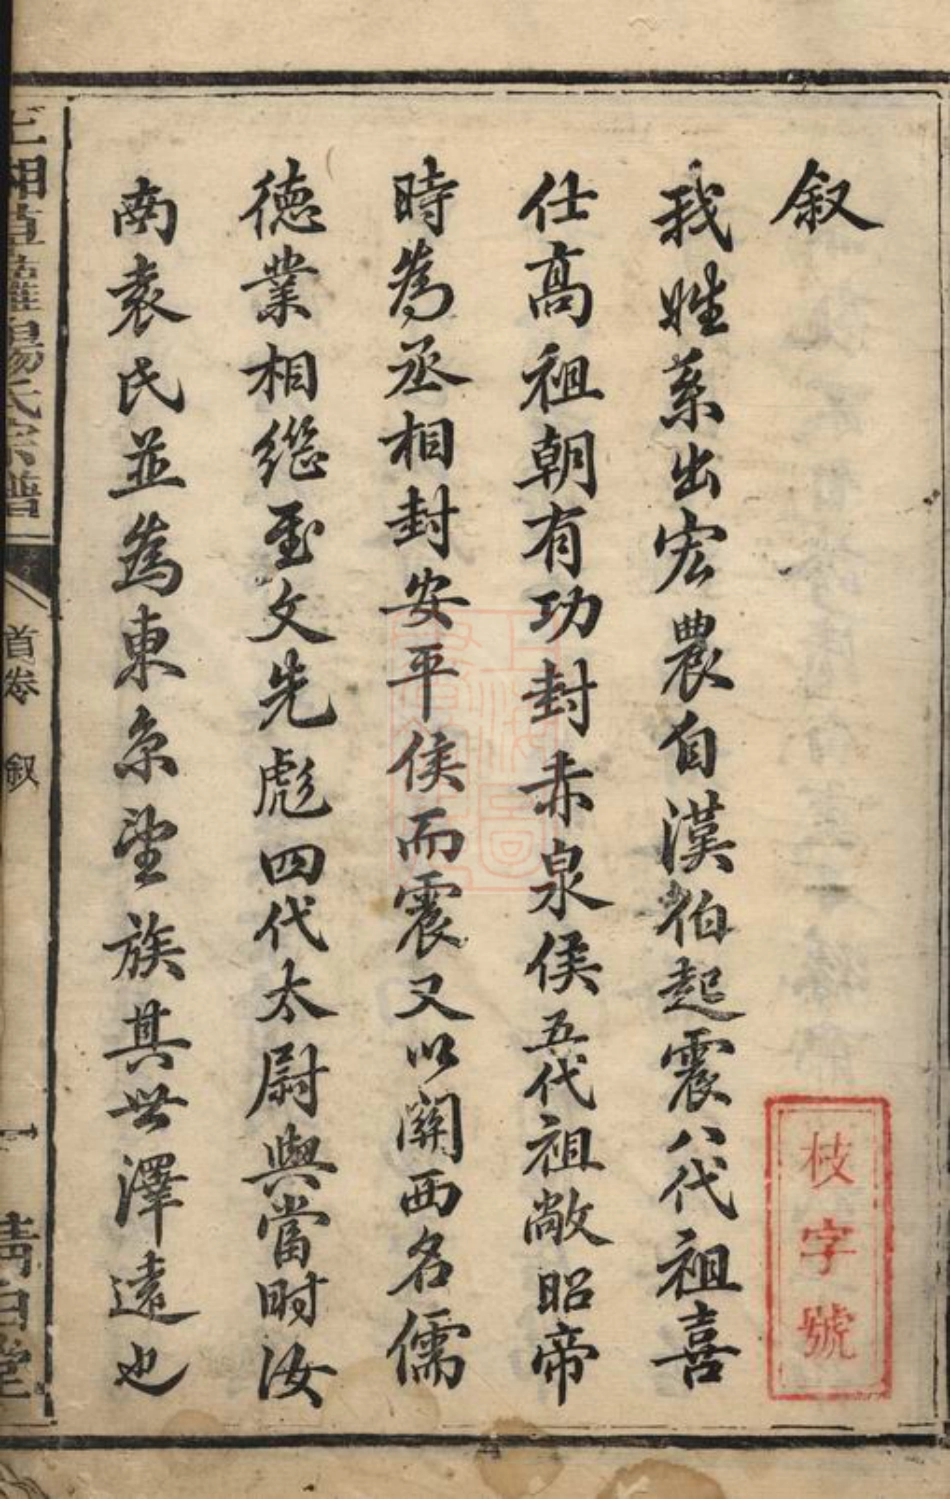 叙
我姓系出宏農自漢伯起震八代祖喜
仕髙祖朝有功封赤泉侯五代祖敞昭帝
時為丞相封安平侯而震又以關西名儒
德業相繼至文先彪四代太尉與當时汝
南袁氏並為東京望族其世澤遠也
枝字號
楊氏宗譜
首卷 叙
一 清白堂